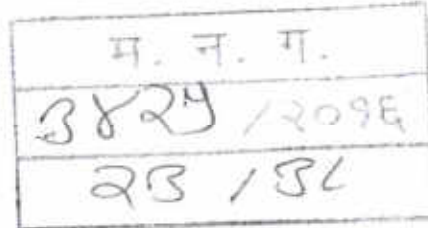 म. न. ग.
३४२५ /२०१६
२३ / ३८